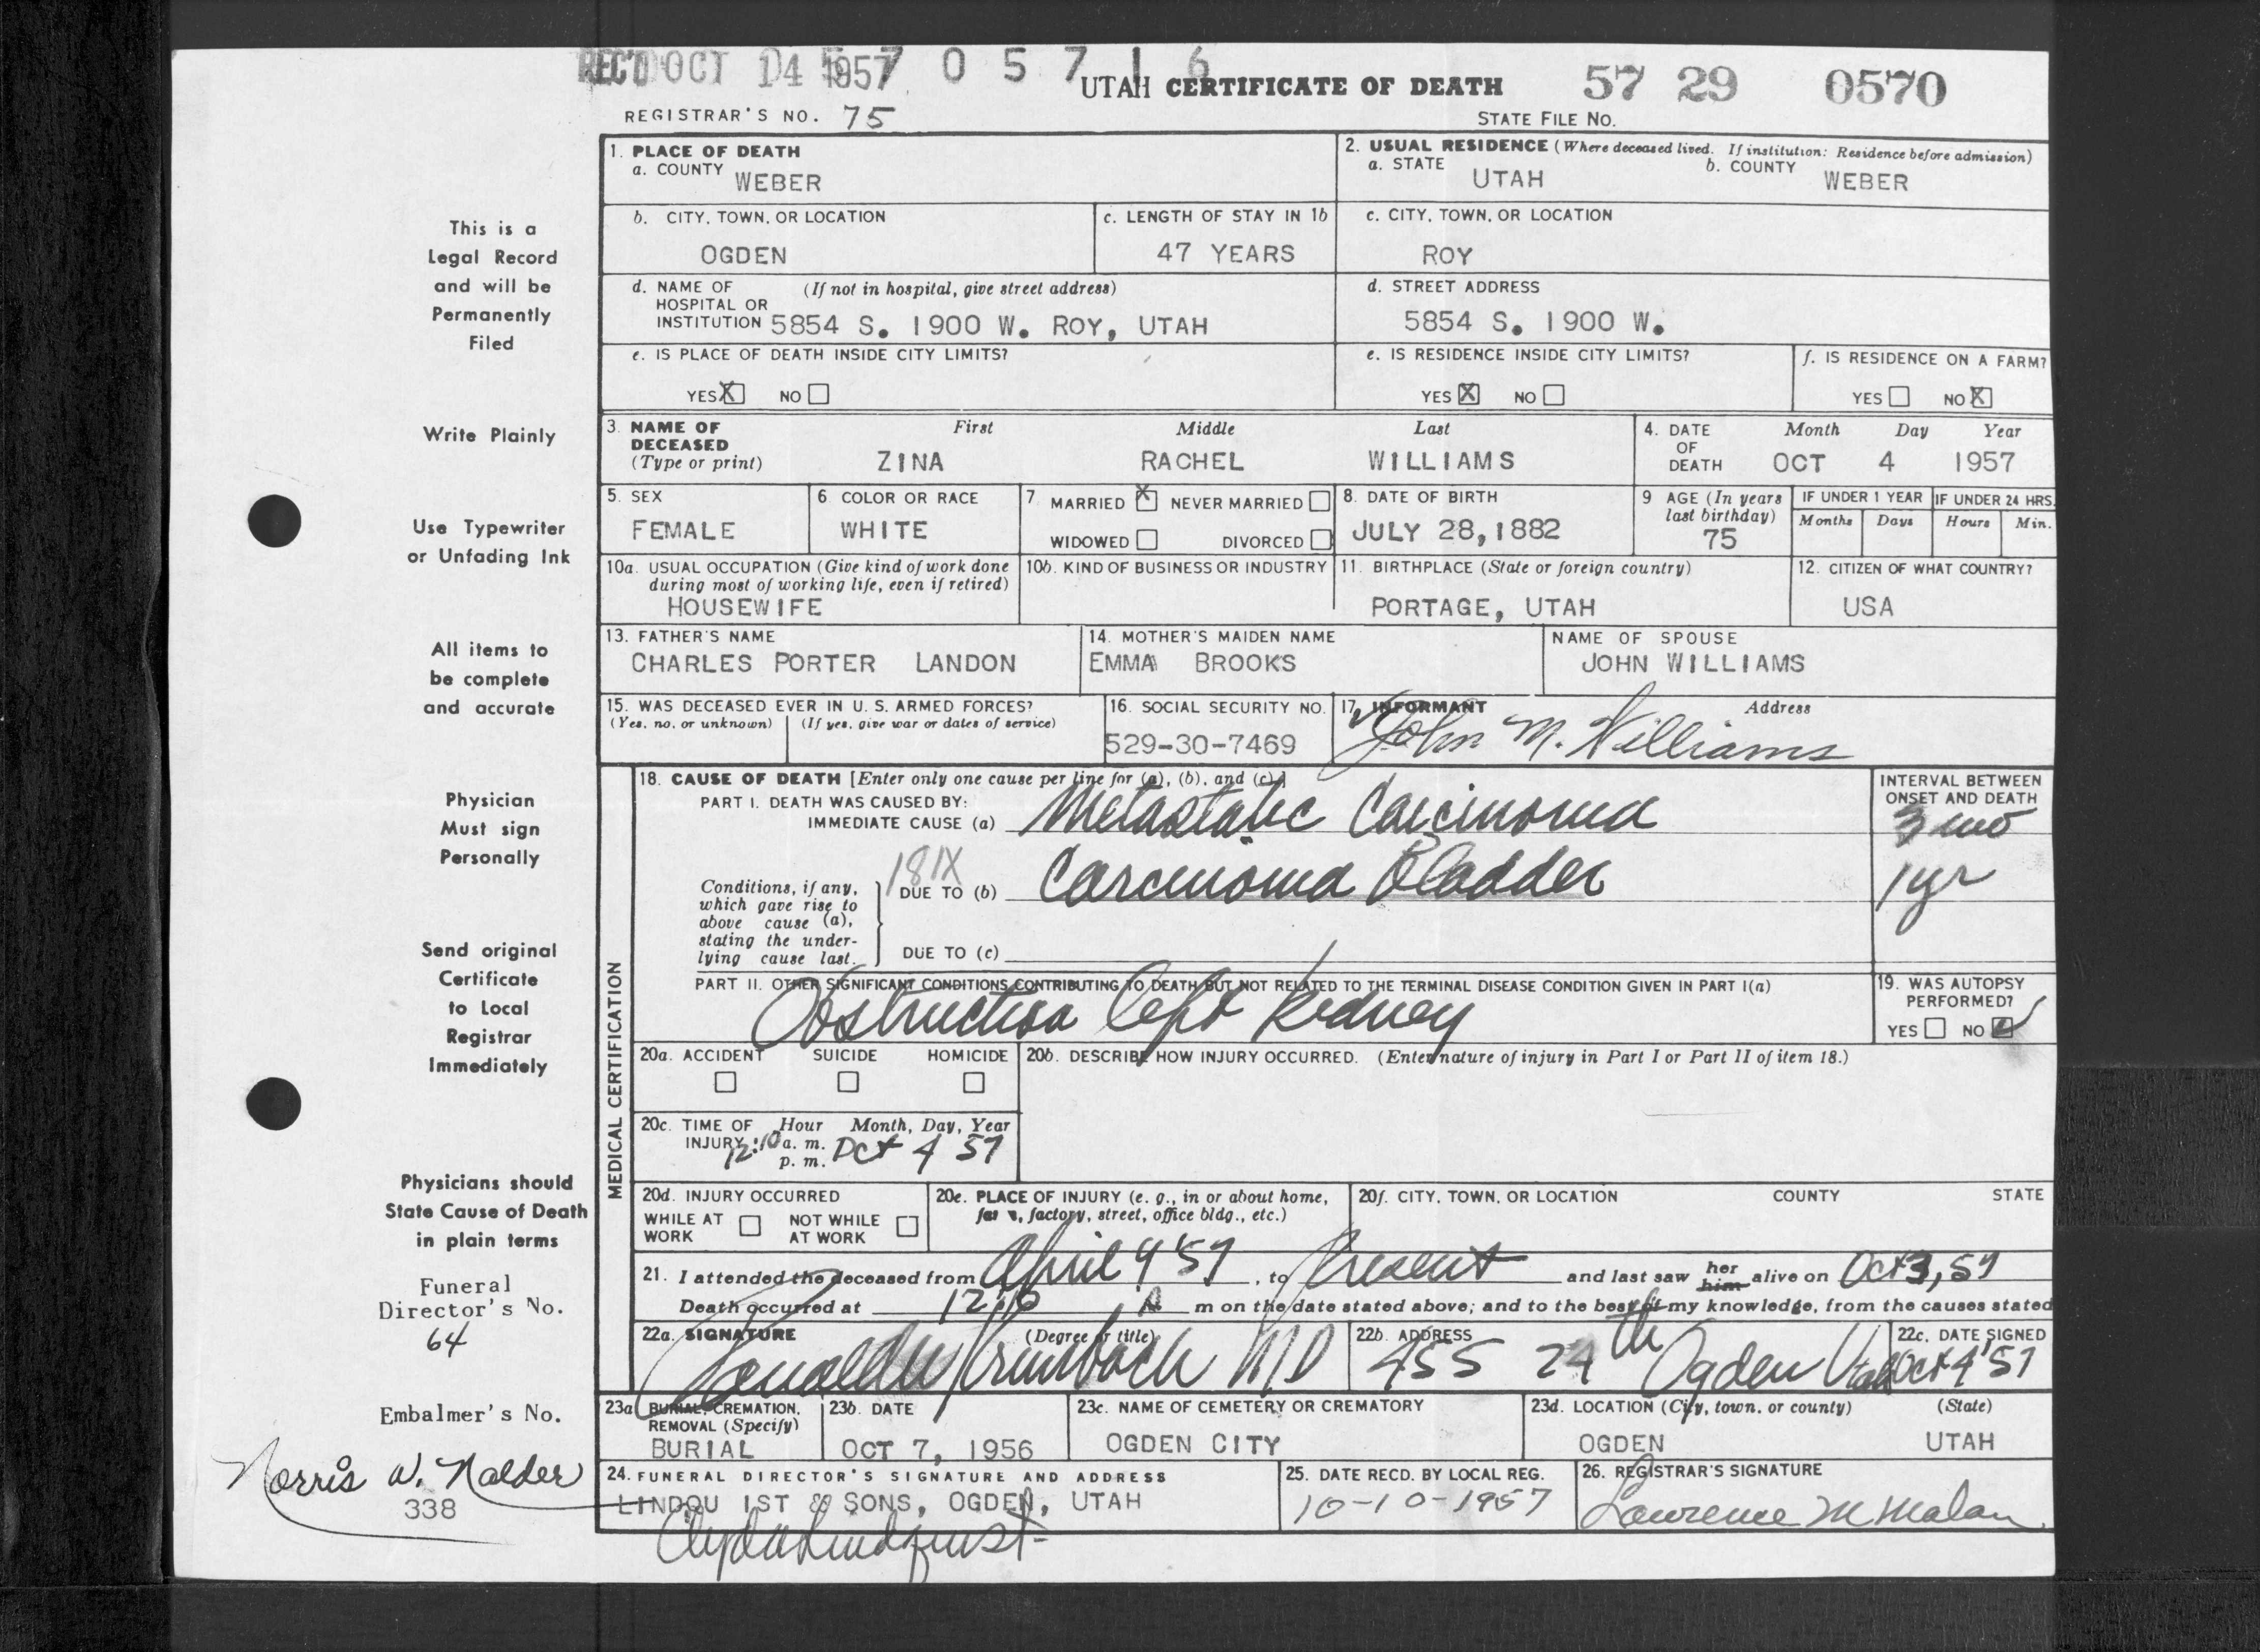 REC'D OCT 14 1957 0 5 7 1 6
UTAH CERTIFICATE OF DEATH 57 29 0570
REGISTRAR'S NO. 75
STATE FILE NO.
1. PLACE OF DEATH
a. COUNTY WEBER
2. USUAL RESIDENCE (Where deceased lived. If institution: Residence before admission)
a. STATE UTAH b. COUNTY WEBER
b. CITY, TOWN, OR LOCATION OGDEN
c. LENGTH OF STAY IN 1b 47 YEARS
c. CITY, TOWN, OR LOCATION ROY
d. NAME OF (If not in hospital, give street address)
HOSPITAL OR
INSTITUTION 5854 S. 1900 W. ROY, UTAH
d. STREET ADDRESS
5854 S. 1900 W.
e. IS PLACE OF DEATH INSIDE CITY LIMITS?
YES X NO
e. IS RESIDENCE INSIDE CITY LIMITS?
YES X NO
f. IS RESIDENCE ON A FARM?
YES NO X
3. NAME OF DECEASED (Type or print)
First Middle Last
ZINA RACHEL WILLIAMS
4. DATE OF DEATH
Month Day Year
OCT 4 1957
5. SEX
FEMALE
6 COLOR OR RACE
WHITE
7. MARRIED X NEVER MARRIED
WIDOWED DIVORCED
8. DATE OF BIRTH
JULY 28,1882
9 AGE (In years last birthday)
75
IF UNDER 1 YEAR IF UNDER 24 HRS.
Months Days Hours Min.
10a. USUAL OCCUPATION (Give kind of work done
during most of working life, even if retired)
HOUSEWIFE
10b. KIND OF BUSINESS OR INDUSTRY
11. BIRTHPLACE (State or foreign country)
PORTAGE, UTAH
12. CITIZEN OF WHAT COUNTRY?
USA
13. FATHER'S NAME
CHARLES PORTER LANDON
14. MOTHER'S MAIDEN NAME
EMMA BROOKS
NAME OF SPOUSE
JOHN WILLIAMS
15. WAS DECEASED EVER IN U. S. ARMED FORCES?
(Yes, no, or unknown) (If yes, give war or dates of service)
16. SOCIAL SECURITY NO.
529-30-7469
17. INFORMANT Address
John M. Williams
MEDICAL CERTIFICATION
18. CAUSE OF DEATH [Enter only one cause per line for (a), (b), and (c).]
PART I. DEATH WAS CAUSED BY:
IMMEDIATE CAUSE (a) Metastatic Carcinoma
INTERVAL BETWEEN
ONSET AND DEATH
3 mo
181X
Conditions, if any,
which gave rise to
above cause (a),
stating the under-
lying cause last.
DUE TO (b) Carcinoma Bladder
1 yr
DUE TO (c)
PART II. OTHER SIGNIFICANT CONDITIONS CONTRIBUTING TO DEATH BUT NOT RELATED TO THE TERMINAL DISEASE CONDITION GIVEN IN PART I(a)
Obstruction left kidney
19. WAS AUTOPSY
PERFORMED?
YES NO
20a. ACCIDENT SUICIDE HOMICIDE
20b. DESCRIBE HOW INJURY OCCURRED. (Enter nature of injury in Part I or Part II of item 18.)
20c. TIME OF INJURY
Hour Month, Day, Year
12:10 a. m. Oct 4 57
p. m.
20d. INJURY OCCURRED
WHILE AT WORK NOT WHILE AT WORK
20e. PLACE OF INJURY (e. g., in or about home,
farm, factory, street, office bldg., etc.)
20f. CITY, TOWN, OR LOCATION COUNTY STATE
21. I attended the deceased from April 9 '57, to Present and last saw her him alive on Oct 3, 57
Death occurred at 12:10 A m on the date stated above; and to the best of my knowledge, from the causes stated
22a. SIGNATURE (Degree or title)
MD
22b. ADDRESS
455 24th Ogden Utah
22c. DATE SIGNED
Oct 4 '57
23a BURIAL, CREMATION,
REMOVAL (Specify)
BURIAL
23b. DATE
OCT 7, 1956
23c. NAME OF CEMETERY OR CREMATORY
OGDEN CITY
23d. LOCATION (City, town, or county) (State)
OGDEN UTAH
24. FUNERAL DIRECTOR'S SIGNATURE AND ADDRESS
LINDQU IST & SONS, OGDEN, UTAH
25. DATE RECD. BY LOCAL REG.
10-10-1957
26. REGISTRAR'S SIGNATURE
Lawrence M Malan
This is a
Legal Record
and will be
Permanently
Filed
Write Plainly
Use Typewriter
or Unfading Ink
All items to
be complete
and accurate
Physician
Must sign
Personally
Send original
Certificate
to Local
Registrar
Immediately
Physicians should
State Cause of Death
in plain terms
Funeral
Director's No.
64
Embalmer's No.
Norris W. Nalder
338